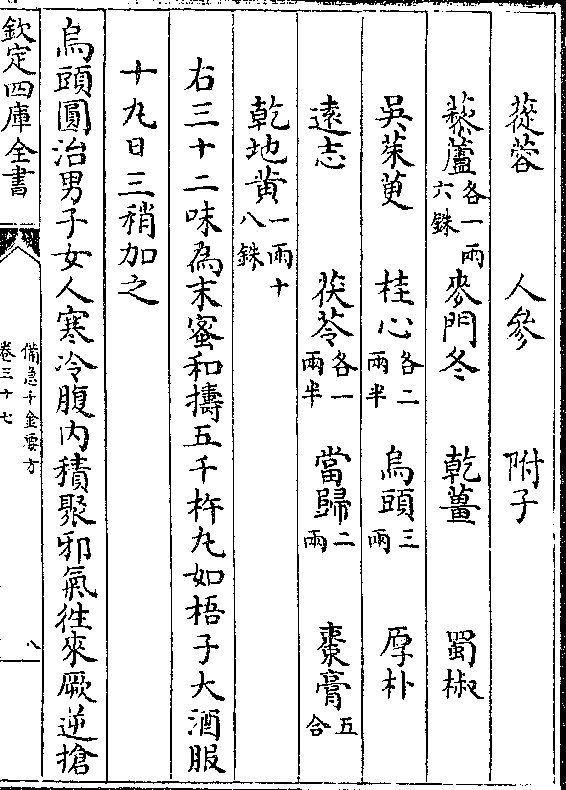 蓯蓉 人參 附子
藜蘆各一兩六銖 麥門冬 乾薑 蜀椒
吳茱萸 桂心各二兩半 烏頭三兩 厚朴
遠志 茯苓各一兩半 當歸二兩 棗膏五合
乾地黃一兩十八銖
右三十二味為末蜜和擣五千杵丸如梧子大酒服
十丸日三稍加之
烏頭圓治男子女人寒冷腹內積聚邪氣徃來厥逆搶
欽定四庫全書
備急千金要方
卷三十七
八